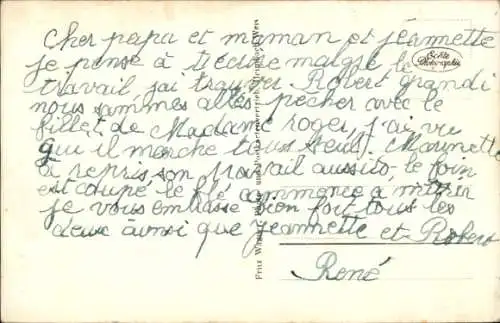 Cher papa et maman et jeannette
je pense à vécrire malgré le
travail jai trauver Robert grandi
nous sommes allés pecher avec le
fillet de Madame roger, j'ai vu
qui il marche tous seul. Marinette
a repris son travail aussito, le foin
est coupé le blé commence a murir
je vous embrasse bien fort tous les
deux äinsi que jeannette et Robert
René
Echte
Photographie